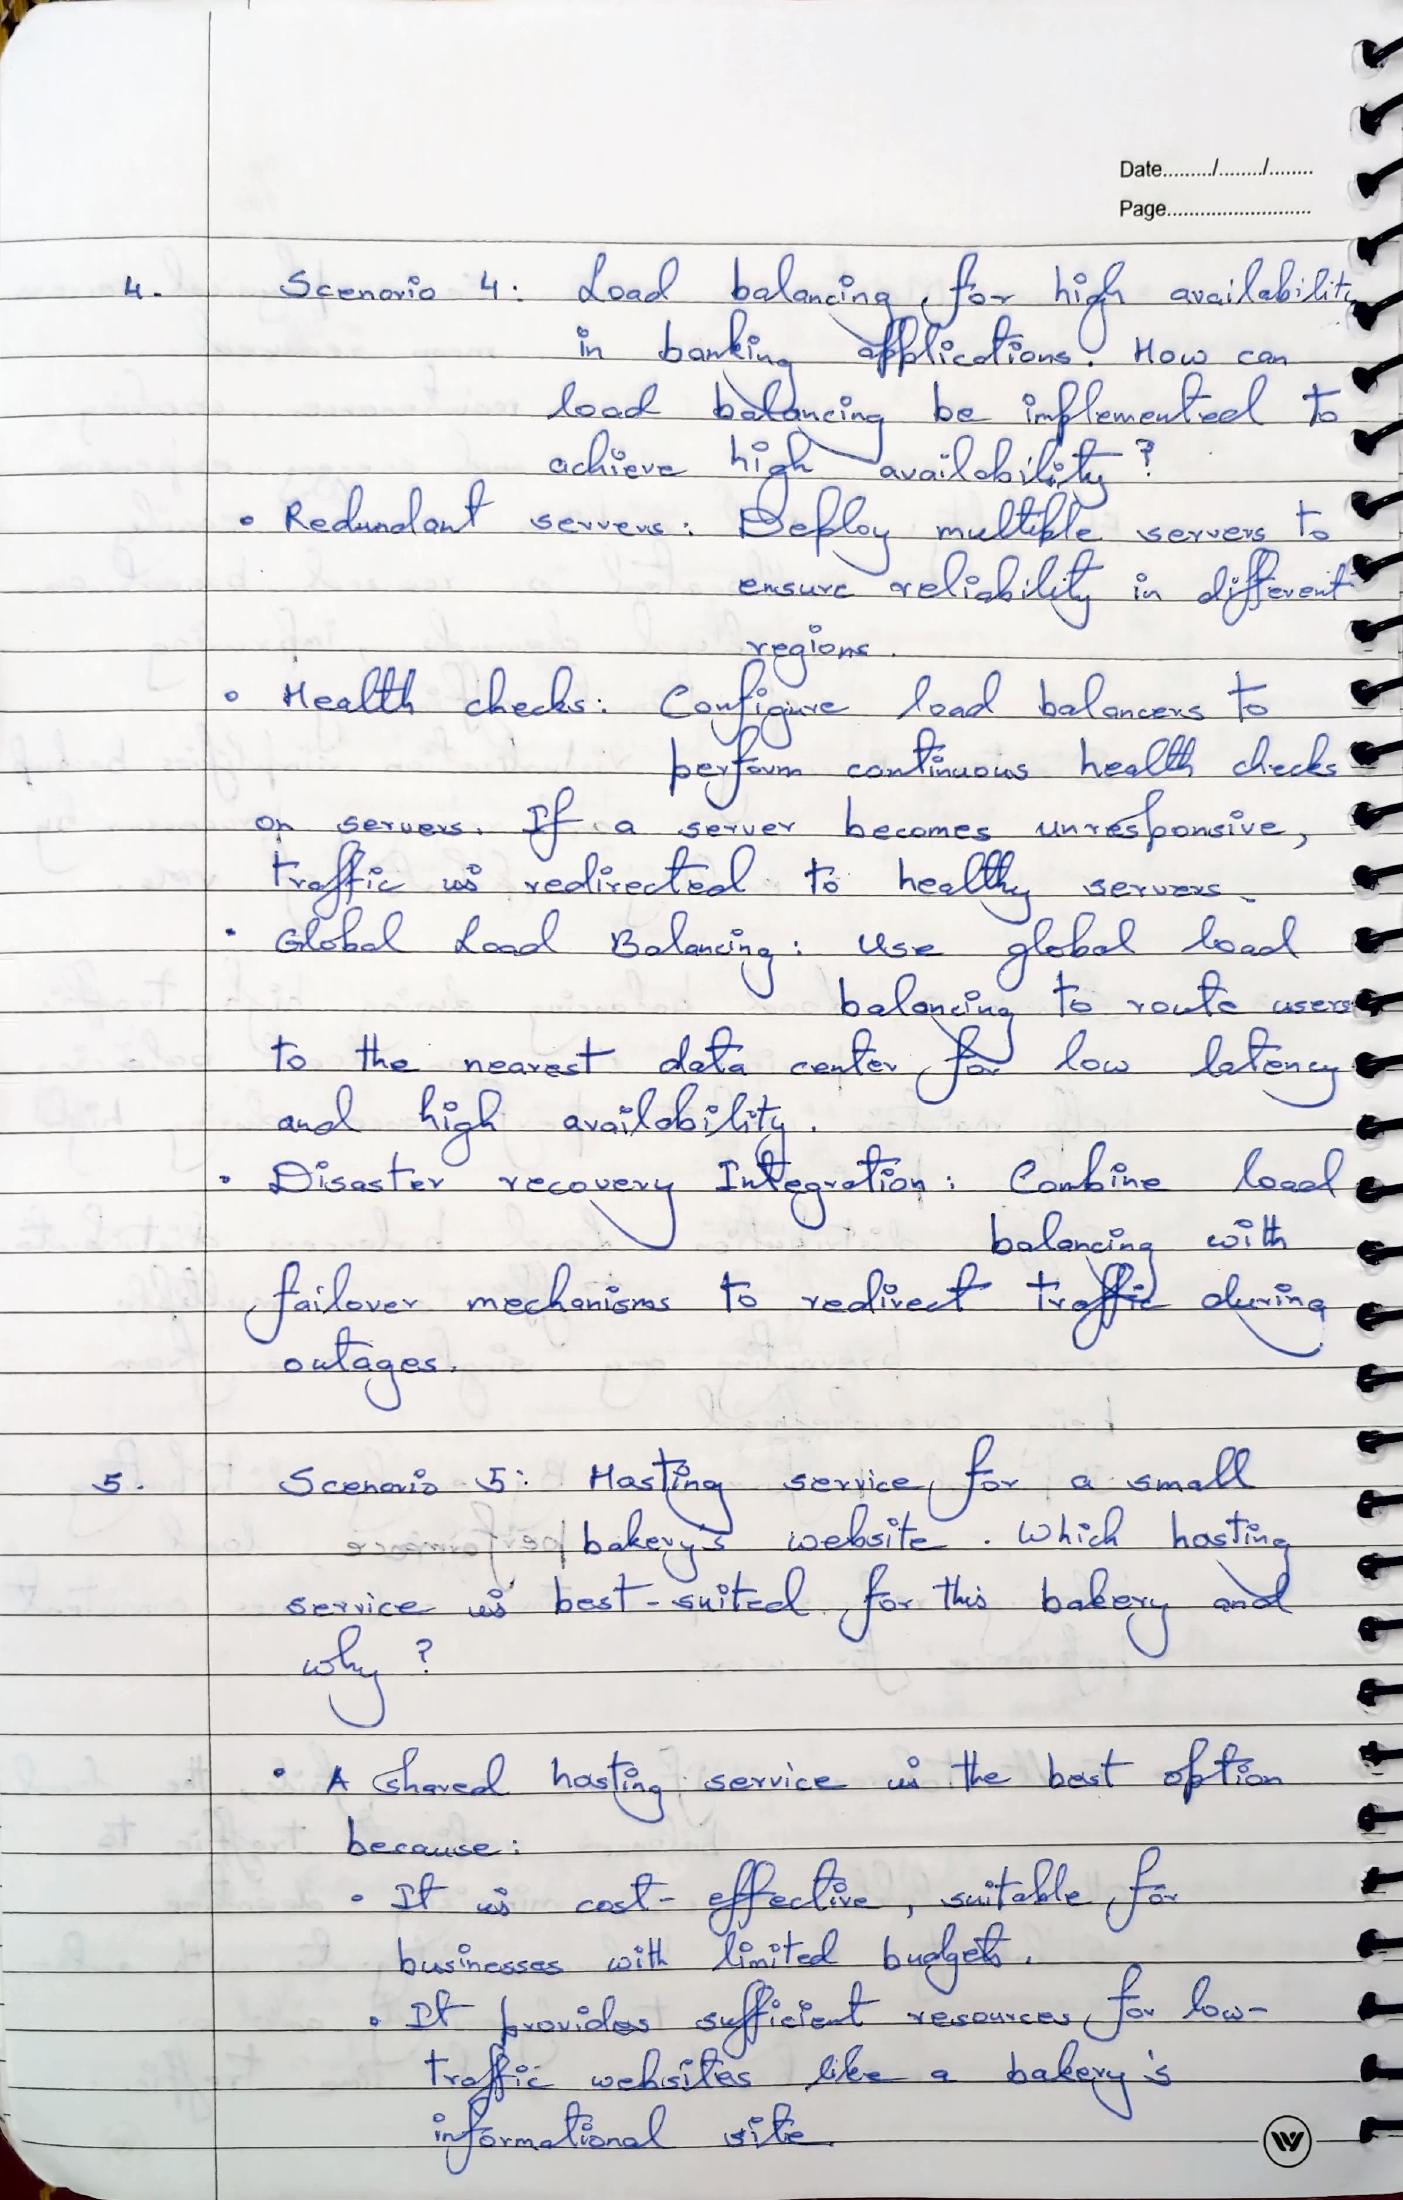 Date........./......../........
Page...........................
4. Scenario 4: Load balancing for high availability
in banking applications. How can
load balancing be implemented to
achieve high availability?
• Redundant servers: Deploy multiple servers to
ensure reliability in different
regions.
• Health checks: Configure load balancers to
perform continuous health checks
on servers. If a server becomes unresponsive,
traffic is redirected to healthy servers.
• Global Load Balancing: Use global load
balancing to route users
to the nearest data center for low latency
and high availability.
• Disaster recovery Integration: Combine load
balancing with
failover mechanisms to redirect traffic during
outages.
5. Scenario 5: Hosting service for a small
bakery's website. Which hosting
service is best-suited for this bakery and
why?
• A shared hosting service is the best option
because:
• It is cost-effective, suitable for
businesses with limited budgets.
• It provides sufficient resources for low-
traffic websites like a bakery's
informational site.
W